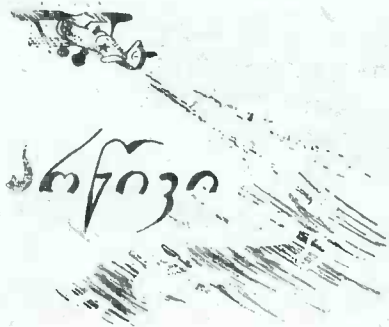 არწივი